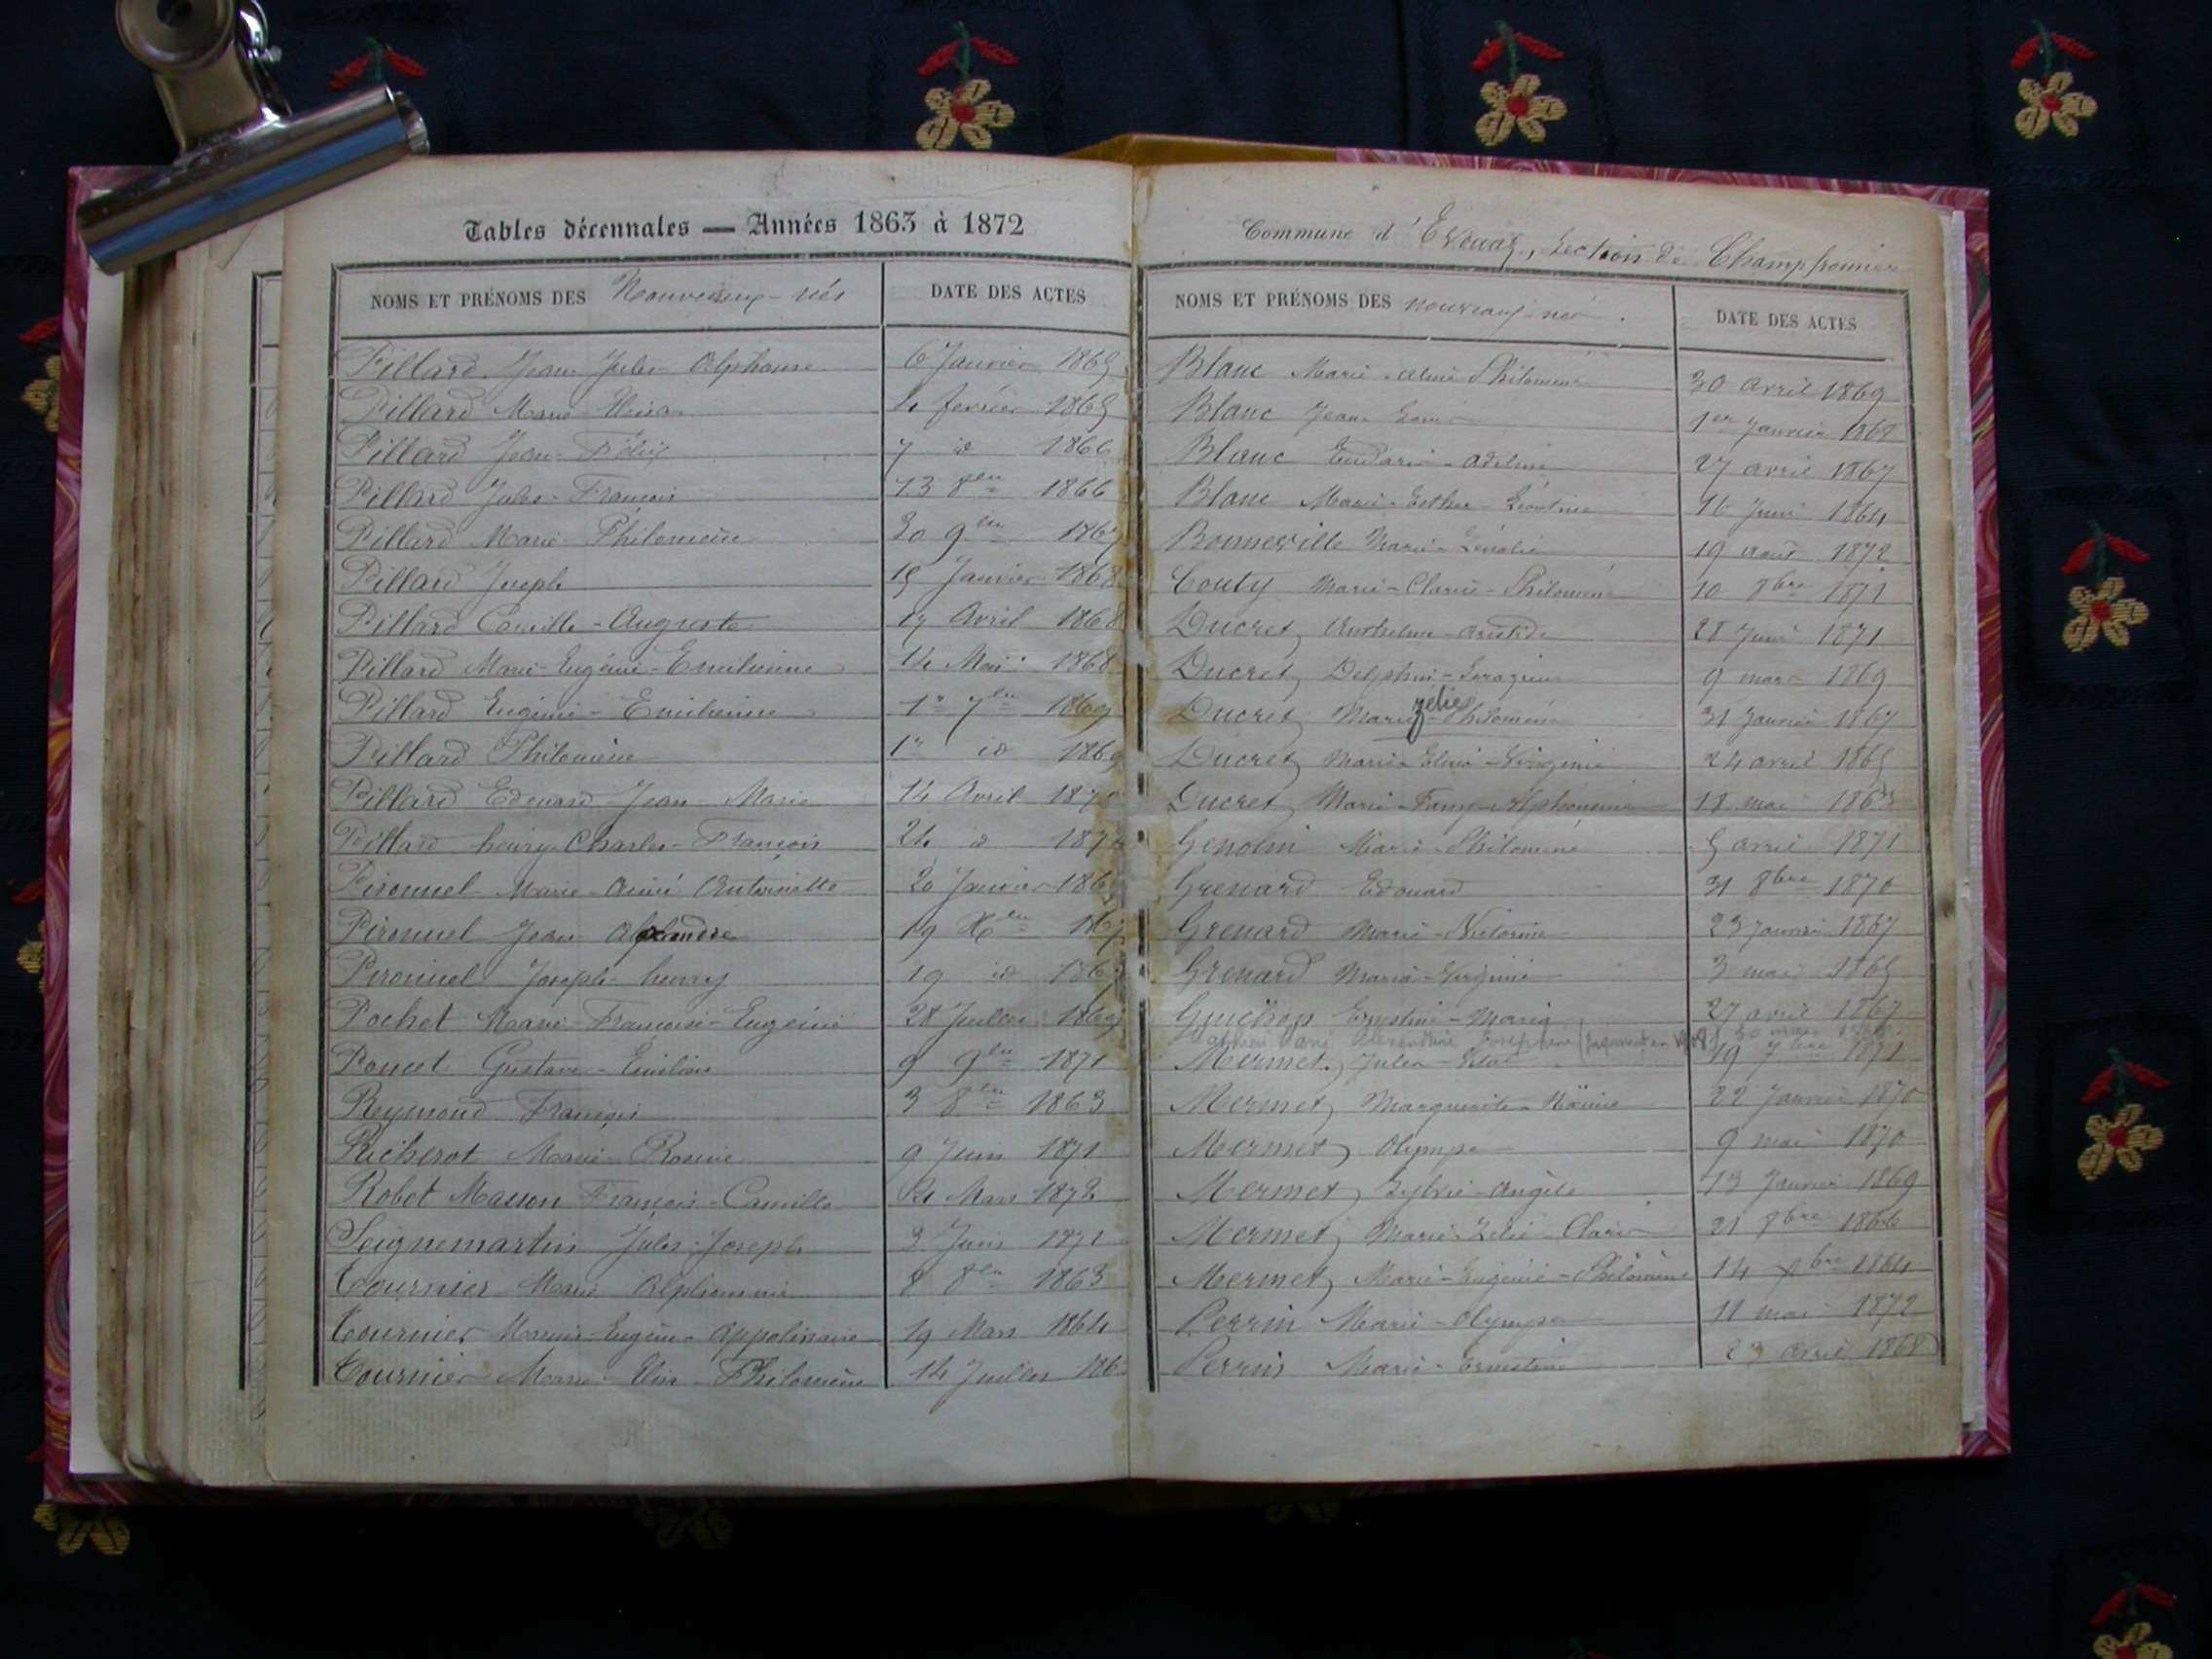 Tables décennales — Années 1863 à 1872
NOMS ET PRÉNOMS DES Nouveaux-nés DATE DES ACTES
Pillard Jean Jules Alphonse 6 Janvier 1865
Pillard Marie Elisa 4 février 1865
Pillard Jean-Félix 7 id 1866
Pillard Jules-François 13 8bre 1866
Pillard Marie-Philomène 20 9bre 1867
Pillard Joseph 15 Janvier 1868
Pillard Camille-Auguste 17 Avril 1868
Pillard Marie-Eugénie-Emilienne 14 Mai 1868
Pillard Eugénie-Emilienne 1r 7bre 1869
Pillard Philomène 1r id 1869
Pillard Edouard Jean-Marie 14 Avril 1870
Pillard henry-Charles-François 24 id
Pironnel Marie-Aimé Antoinette 20 Janvier
Pironnel Jean 19 Xbre
Pironnel Joseph-henry 19 id
Pochet Marie-Françoise-Eugénie 28 Juillet 1869
Poncet Gustave-Emilien 9 9bre 1871
Reymond François 3 8bre 1863
Richerot Marie-Rosine 9 Juin 1871
Robet Masson François-Camille Mars 1872
Seignemartin Jules-Joseph 3 Juin 1871
Tournier Marie Alphonsine 8 8bre 1863
Tournier Marie-Eugène-Appolinaire 19 Mars 1864
Tournier Marie-Elisa-Philomène 14 Juillet 186
Commune d'Evouaz, Section de Champfromier
NOMS ET PRÉNOMS DES nouveaux-nés. DATE DES ACTES
Blanc Marie-Philomène 30 avril 1869
Blanc Jean-Louis 1er Janvier 1868
Blanc Adeline 27 avril 1867
Blanc Marie-Esther-Léontine 16 Juin 1864
Bonneville Marie 19 août 1872
Couty Marie-Clarie-Philomène 10 8bre 1871
Ducret Anthelme-Aristide 28 Juin 1871
Ducret Delphin 9 mars 1869
zélie
Ducret Marie-Philomène 31 Janvier 1867
Ducret Marie-Elisa-Virginie 24 avril 1865
Ducret Marie-Fany-Alphonsine 18 mai 1863
Genolin Marie-Philomène 5 avril 1871
Grenard Edouard 31 8bre 1870
Grenard Marie-Victorine 23 Janvier 1867
Grenard Maria-Virginie 3 mai 1865
Guichon Ernestine-Maria 27 avril 1867
Alexandrine Joséphine (Jugement en 1908)
Mermet Jules 19 7bre 1871
Mermet Marguerite 22 Janvier 1870
Mermet Olympe 9 mai 1870
Mermet Sylvie-Angèle 13 Janvier 1869
Mermet Marie-Zélie-Claris 21 8bre 1866
Mermet Marie-Eugénie-Philomène 14 Xbre 1864
Perrin Marie-Olympe 11 mai 1872
Perrin Marie-Ernestine 23 avril 1868